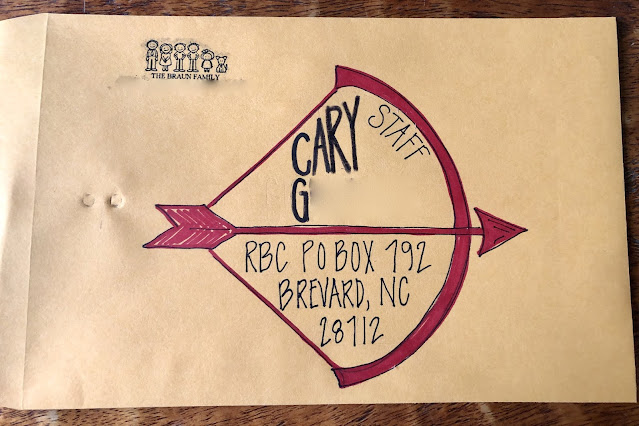 THE BRAUN FAMILY
CARY STAFF
G
RBC PO BOX 792
BREVARD, NC
28712